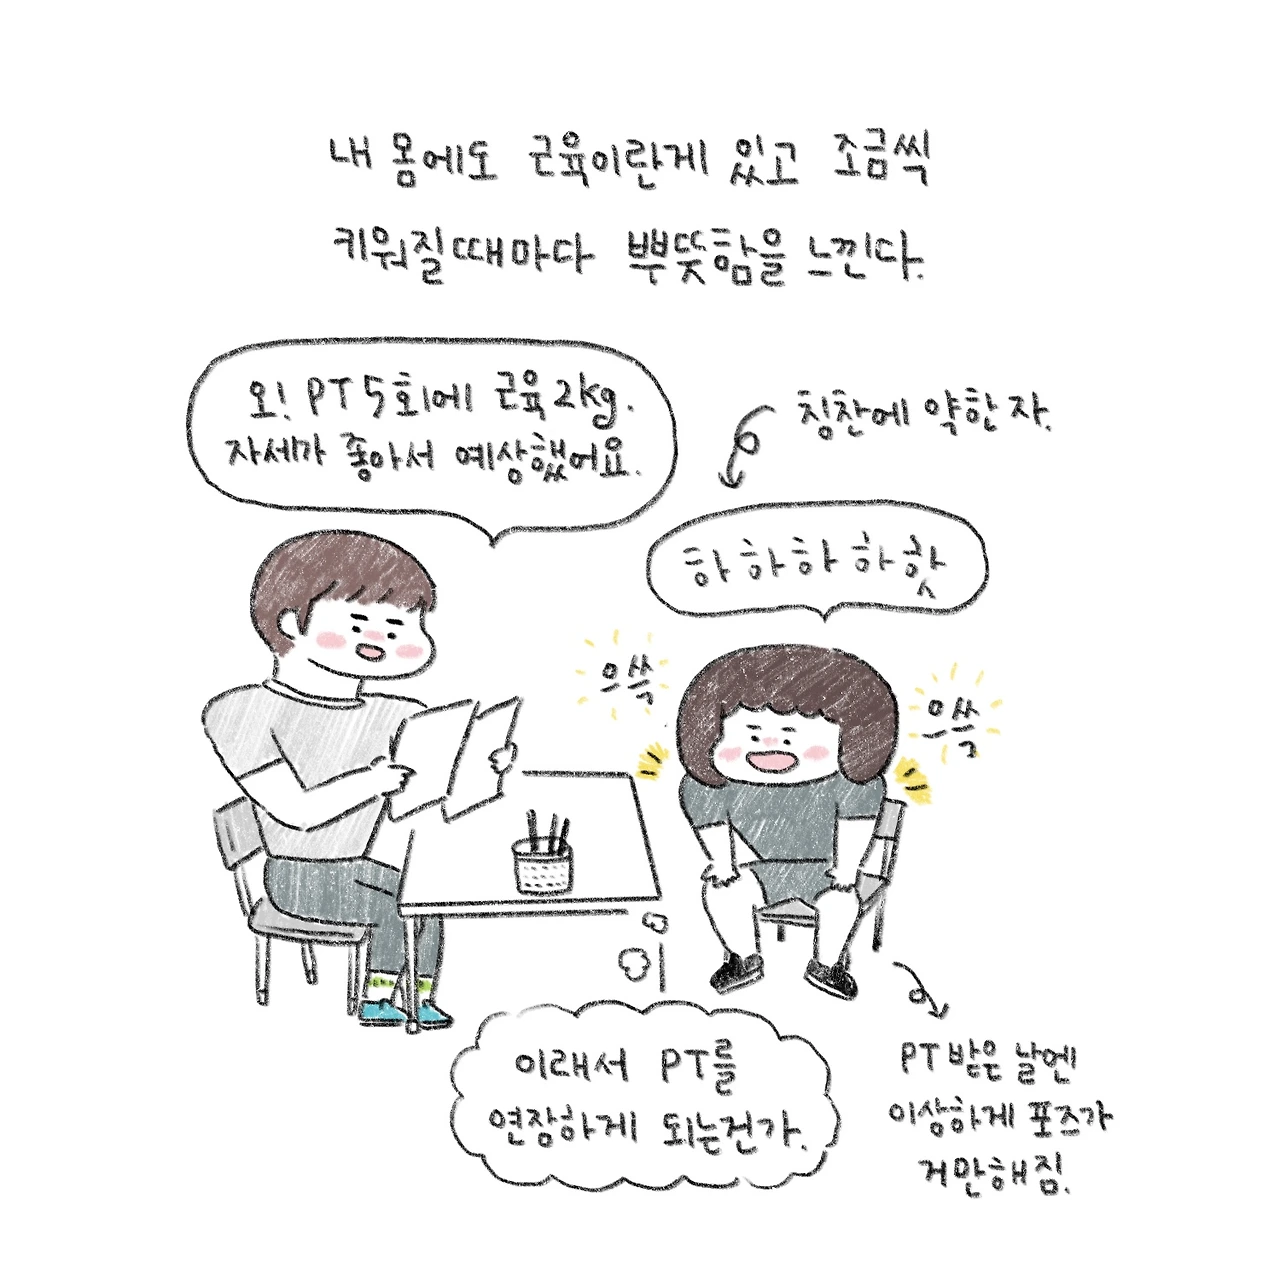 내 몸에도 근육이란게 있고 조금씩
키워질때마다 뿌듯함을 느낀다.
오! PT 5회에 근육 2kg.
자세가 좋아서 예상했어요.
칭찬에 약한 자.
하 하 하 하 핫
으쓱
으쓱
이래서 PT를
연장하게 되는건가.
PT 받은 날엔
이상하게 포즈가
거만해짐.